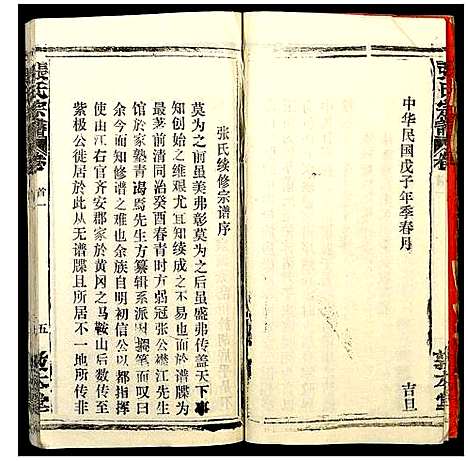 張氏宗譜
卷
中华民国戊子年季春月
吉旦
张氏续修宗谱序
莫为之前虽美弗彰莫为之后虽盛弗传盖天下事
知创始之维艰尤宜知续成之不易也而于谱牒为
尤甚前清同治癸酉春青时方弱冠张公襟江先生
馆于家塾青谒焉先生方纂辑系派因搦笔而叹曰
余今而知修谱之难也余族自明初信公以都指挥
使由江右官齐安郡家于黄冈之马鞍山后数传至
紫极公徙居于此从无谱牒且所居不一地所传非
張氏宗譜
卷
首一
五
敦本堂